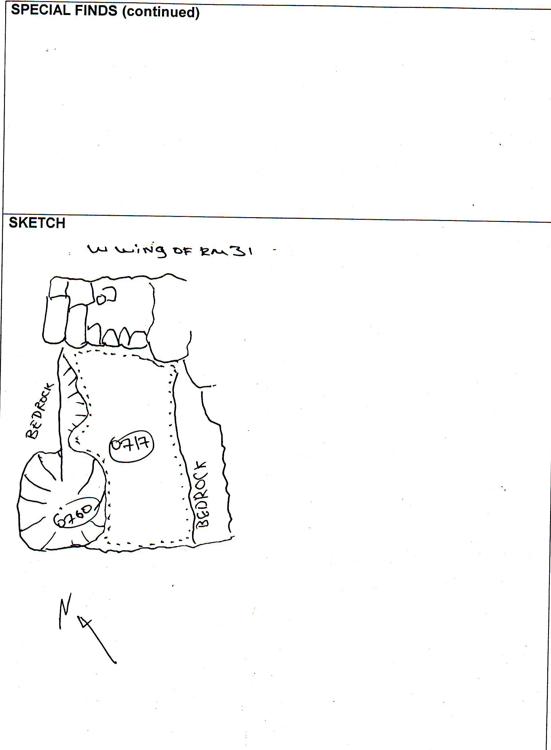 SPECIAL FINDS (continued)
SKETCH
W WING OF RM 31
BEDROCK
0717
BEDROCK
0760
N